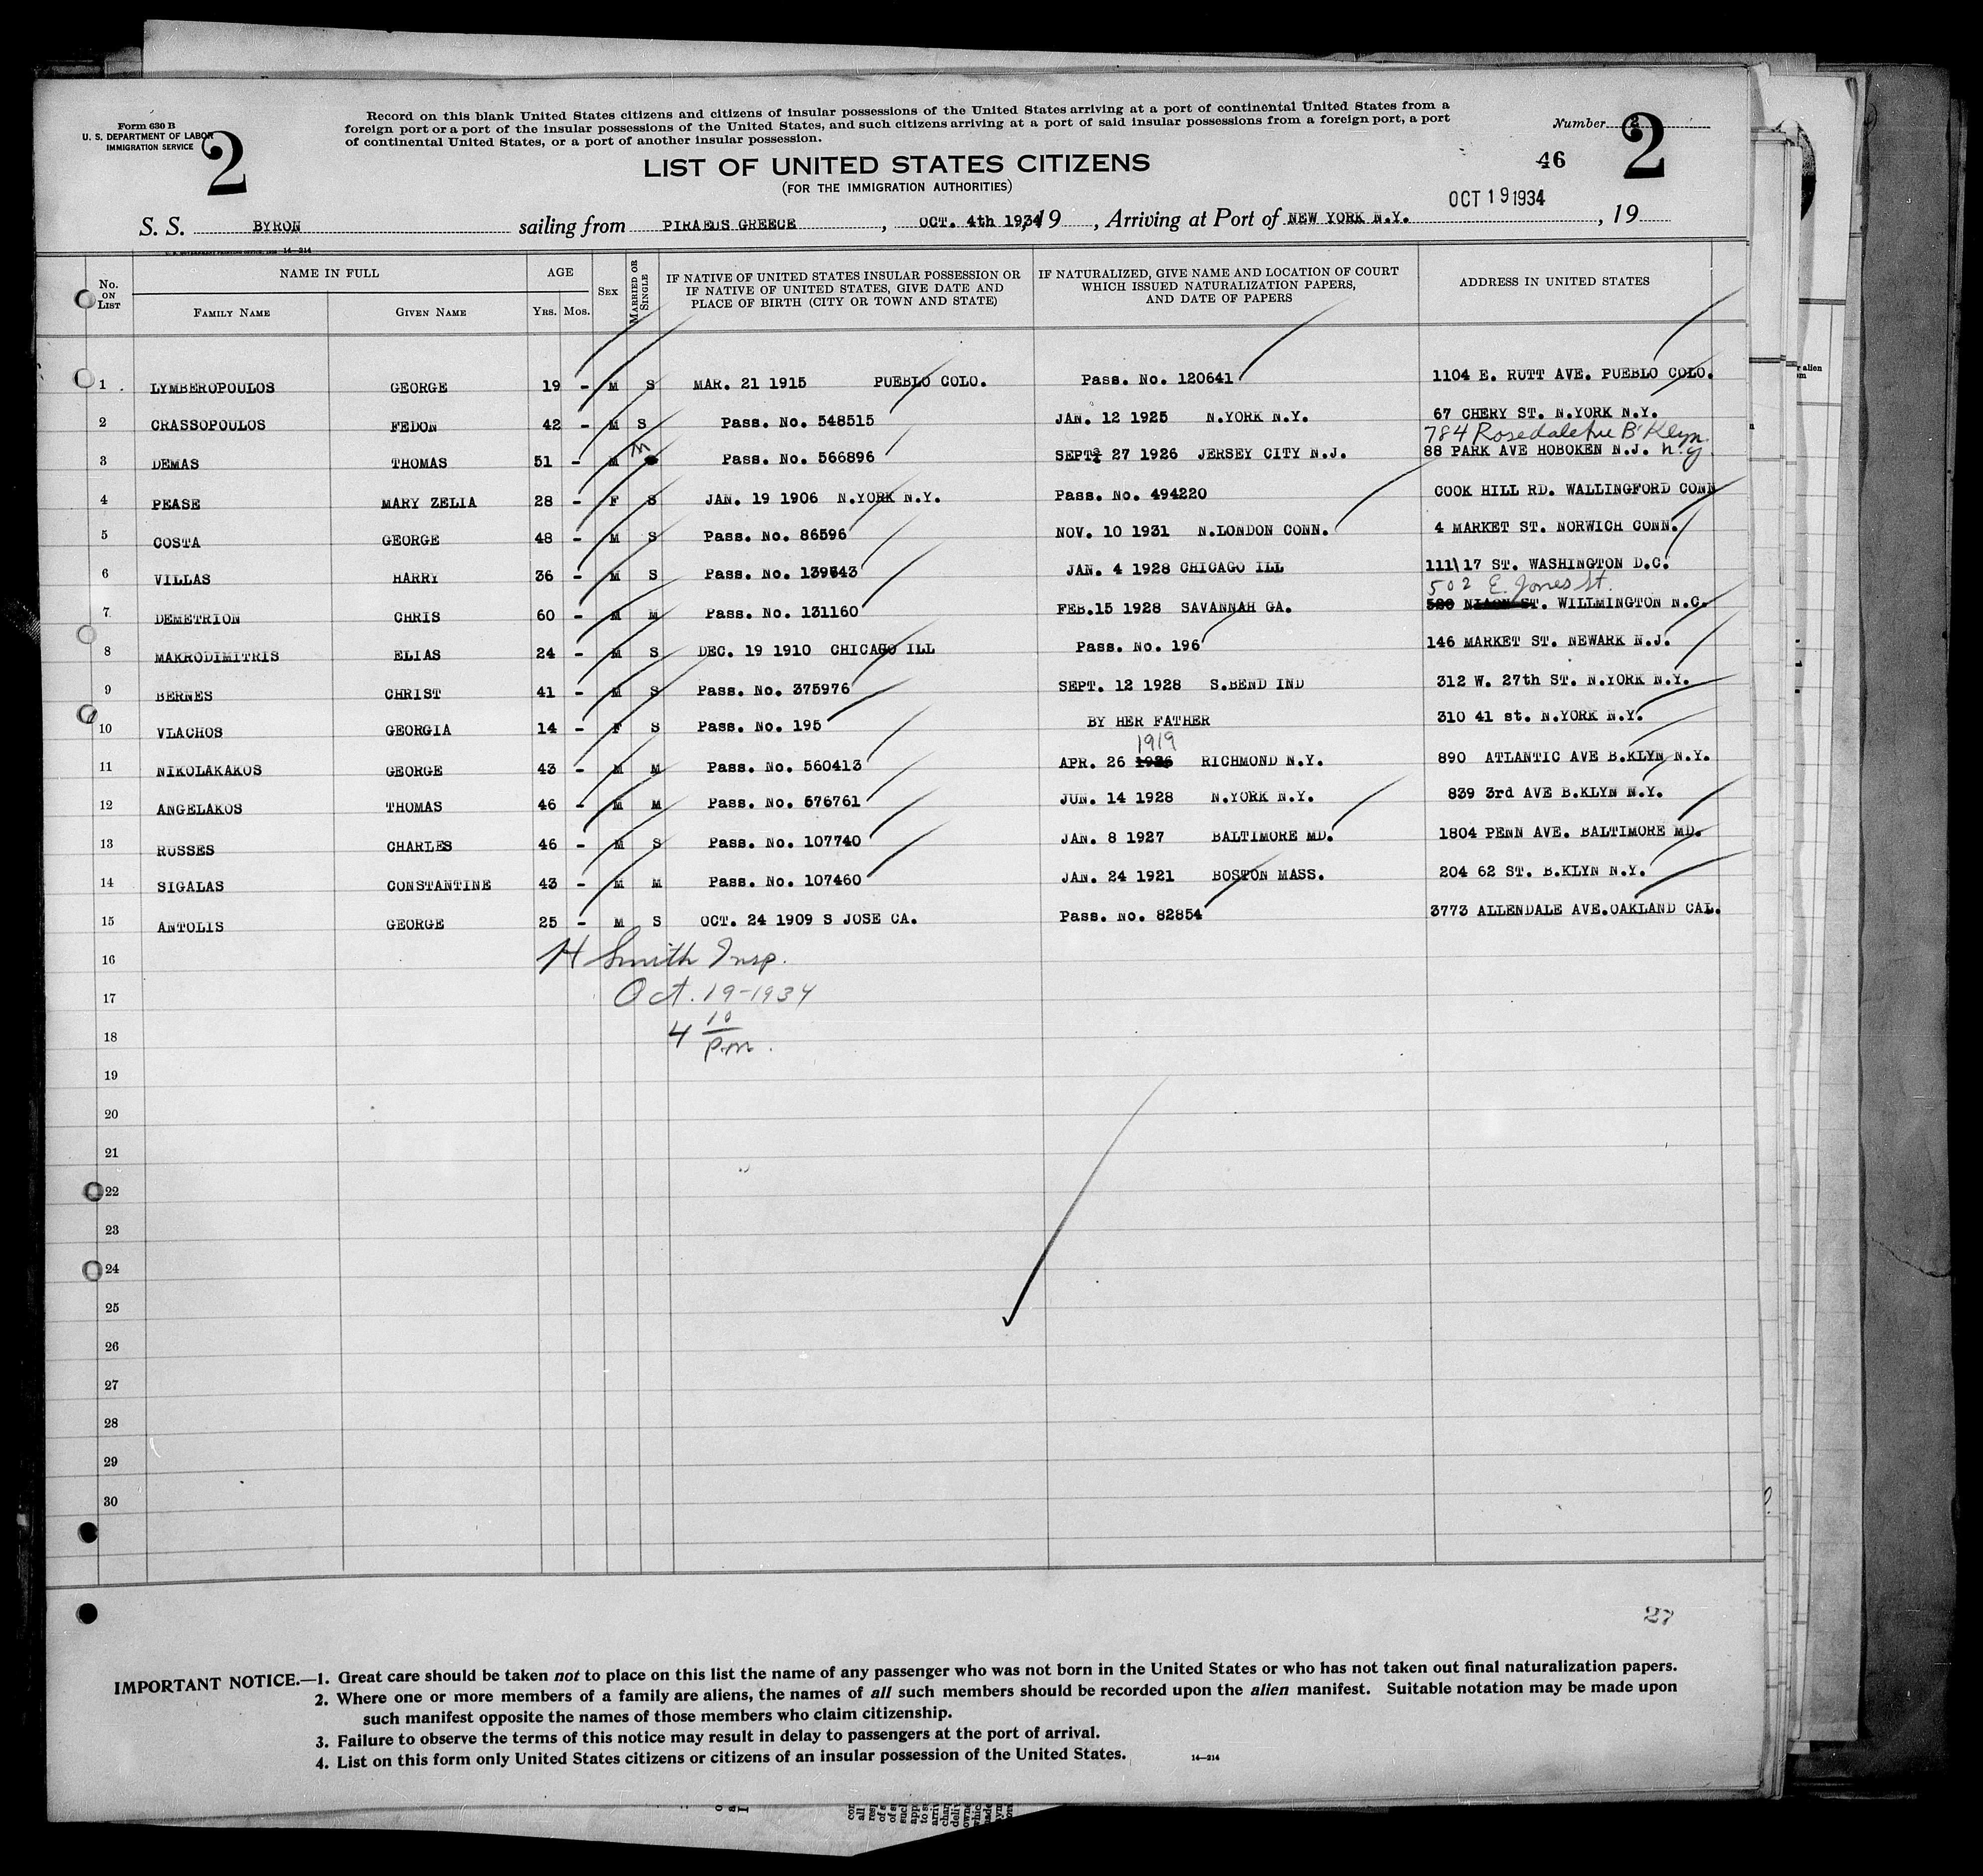 Form 630 B
U. S. DEPARTMENT OF LABOR
IMMIGRATION SERVICE
2
Record on this blank United States citizens and citizens of insular possessions of the United States arriving at a port of continental United States from a
foreign port or a port of the insular possessions of the United States, and such citizens arriving at a port of said insular possessions from a foreign port, a port
of continental United States, or a port of another insular possession.
Number 2
2
46
LIST OF UNITED STATES CITIZENS
(FOR THE IMMIGRATION AUTHORITIES)
OCT 19 1934
S. S. BYRON sailing from PIRAEUS GREECE, OCT. 4th 1934, 19, Arriving at Port of NEW YORK N.Y., 19
14-214
No. ON LIST
NAME IN FULL
FAMILY NAME GIVEN NAME
AGE
YRS. MOS.
SEX
MARRIED OR SINGLE
IF NATIVE OF UNITED STATES INSULAR POSSESSION OR
IF NATIVE OF UNITED STATES, GIVE DATE AND
PLACE OF BIRTH (CITY OR TOWN AND STATE)
IF NATURALIZED, GIVE NAME AND LOCATION OF COURT
WHICH ISSUED NATURALIZATION PAPERS,
AND DATE OF PAPERS
ADDRESS IN UNITED STATES
1 LYMBEROPOULOS GEORGE 19 - M S MAR. 21 1915 PUEBLO COLO. Pass. No. 120641 1104 E. RUTT AVE. PUEBLO COLO.
2 CRASSOPOULOS FEDON 42 - M S Pass. No. 548515 JAN. 12 1925 N.YORK N.Y. 67 CHERY ST. N.YORK N.Y.
784 Rosedale Ave B'Klyn N.Y.
3 DEMAS THOMAS 51 - M M Pass. No. 566896 SEPT. 27 1926 JERSEY CITY N.J. 88 PARK AVE HOBOKEN N.J.
4 PEASE MARY ZELIA 28 - F S JAN. 19 1906 N.YORK N.Y. Pass. No. 494220 COOK HILL RD. WALLINGFORD CONN
5 COSTA GEORGE 48 - M S Pass. No. 86596 NOV. 10 1931 N.LONDON CONN. 4 MARKET ST. NORWICH CONN.
6 VILLAS HARRY 36 - M S Pass. No. JAN. 4 1928 CHICAGO ILL 111\17 ST. WASHINGTON D.C.
502 E. Jones St.
7 DEMETRION CHRIS 60 - M M Pass. No. 131160 FEB.15 1928 SAVANNAH GA. 520 NIXON ST. WILLMINGTON N.C.
8 MAKRODIMITRIS ELIAS 24 - M S DEC. 19 1910 CHICAGO ILL Pass. No. 196 146 MARKET ST. NEWARK N.J.
9 BERNES CHRIST 41 - M S Pass. No. 375976 SEPT. 12 1928 S.BEND IND 312 W. 27th ST. N.YORK N.Y.
10 VLACHOS GEORGIA 14 - F S Pass. No. 195 BY HER FATHER 310 41 st. N.YORK N.Y.
1919
11 NIKOLAKAKOS GEORGE 43 - M M Pass. No. 560413 APR. 26 1926 RICHMOND N.Y. 890 ATLANTIC AVE B.KLYN N.Y.
12 ANGELAKOS THOMAS 46 - M M Pass. No. 576761 JUN. 14 1928 N.YORK N.Y. 839 3rd AVE B.KLYN N.Y.
13 RUSSES CHARLES 46 - M S Pass. No. 107740 JAN. 8 1927 BALTIMORE MD. 1804 PENN AVE. BALTIMORE MD.
14 SIGALAS CONSTANTINE 43 - M M Pass. No. 107460 JAN. 24 1921 BOSTON MASS. 204 62 ST. B.KLYN N.Y.
15 ANTOLIS GEORGE 25 - M S OCT. 24 1909 S JOSE CA. Pass. No. 82854 3773 ALLENDALE AVE.OAKLAND CAL.
16 H Smith Insp.
17 Oct. 19-1934
18 4 10 p.m.
19
20
21
22
23
24
25
26
27
28
29
30
27
IMPORTANT NOTICE.—1. Great care should be taken not to place on this list the name of any passenger who was not born in the United States or who has not taken out final naturalization papers.
2. Where one or more members of a family are aliens, the names of all such members should be recorded upon the alien manifest. Suitable notation may be made upon
such manifest opposite the names of those members who claim citizenship.
3. Failure to observe the terms of this notice may result in delay to passengers at the port of arrival.
4. List on this form only United States citizens or citizens of an insular possession of the United States.
14—214